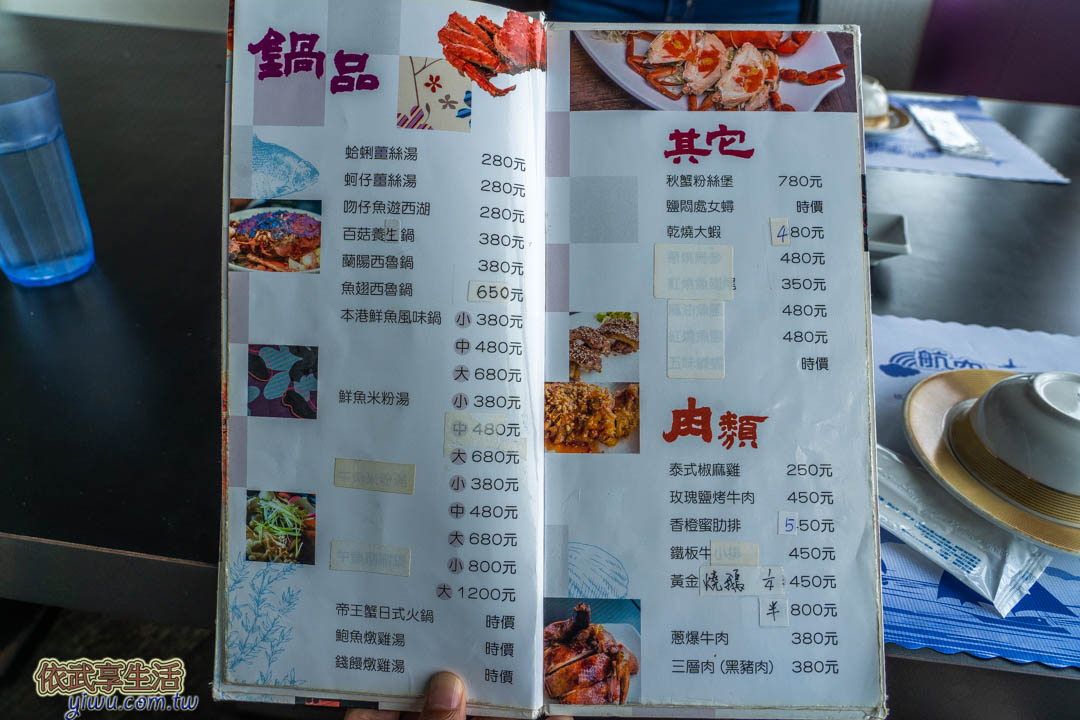 鍋品
蛤蜊薑絲湯 280元
蚵仔薑絲湯 280元
吻仔魚遊西湖 280元
百菇養生鍋 380元
蘭陽西魯鍋 380元
魚翅西魯鍋 650元
本港鮮魚風味鍋 小 380元
中 480元
大 680元
鮮魚米粉湯 小 380元
中 480元
大 680元
小 380元
中 480元
大 680元
小 800元
大 1200元
帝王蟹日式火鍋 時價
鮑魚燉雞湯 時價
錢饅燉雞湯 時價
其它
秋蟹粉絲堡 780元
鹽悶處女蟳 時價
乾燒大蝦 480元
480元
350元
480元
480元
時價
肉類
泰式椒麻雞 250元
玫瑰鹽烤牛肉 450元
香橙蜜肋排 550元
鐵板牛小排 450元
黃金燒鷄 ½ 450元
800元
蔥爆牛肉 380元
三層肉(黑豬肉) 380元
依武享生活
yiwu.com.tw